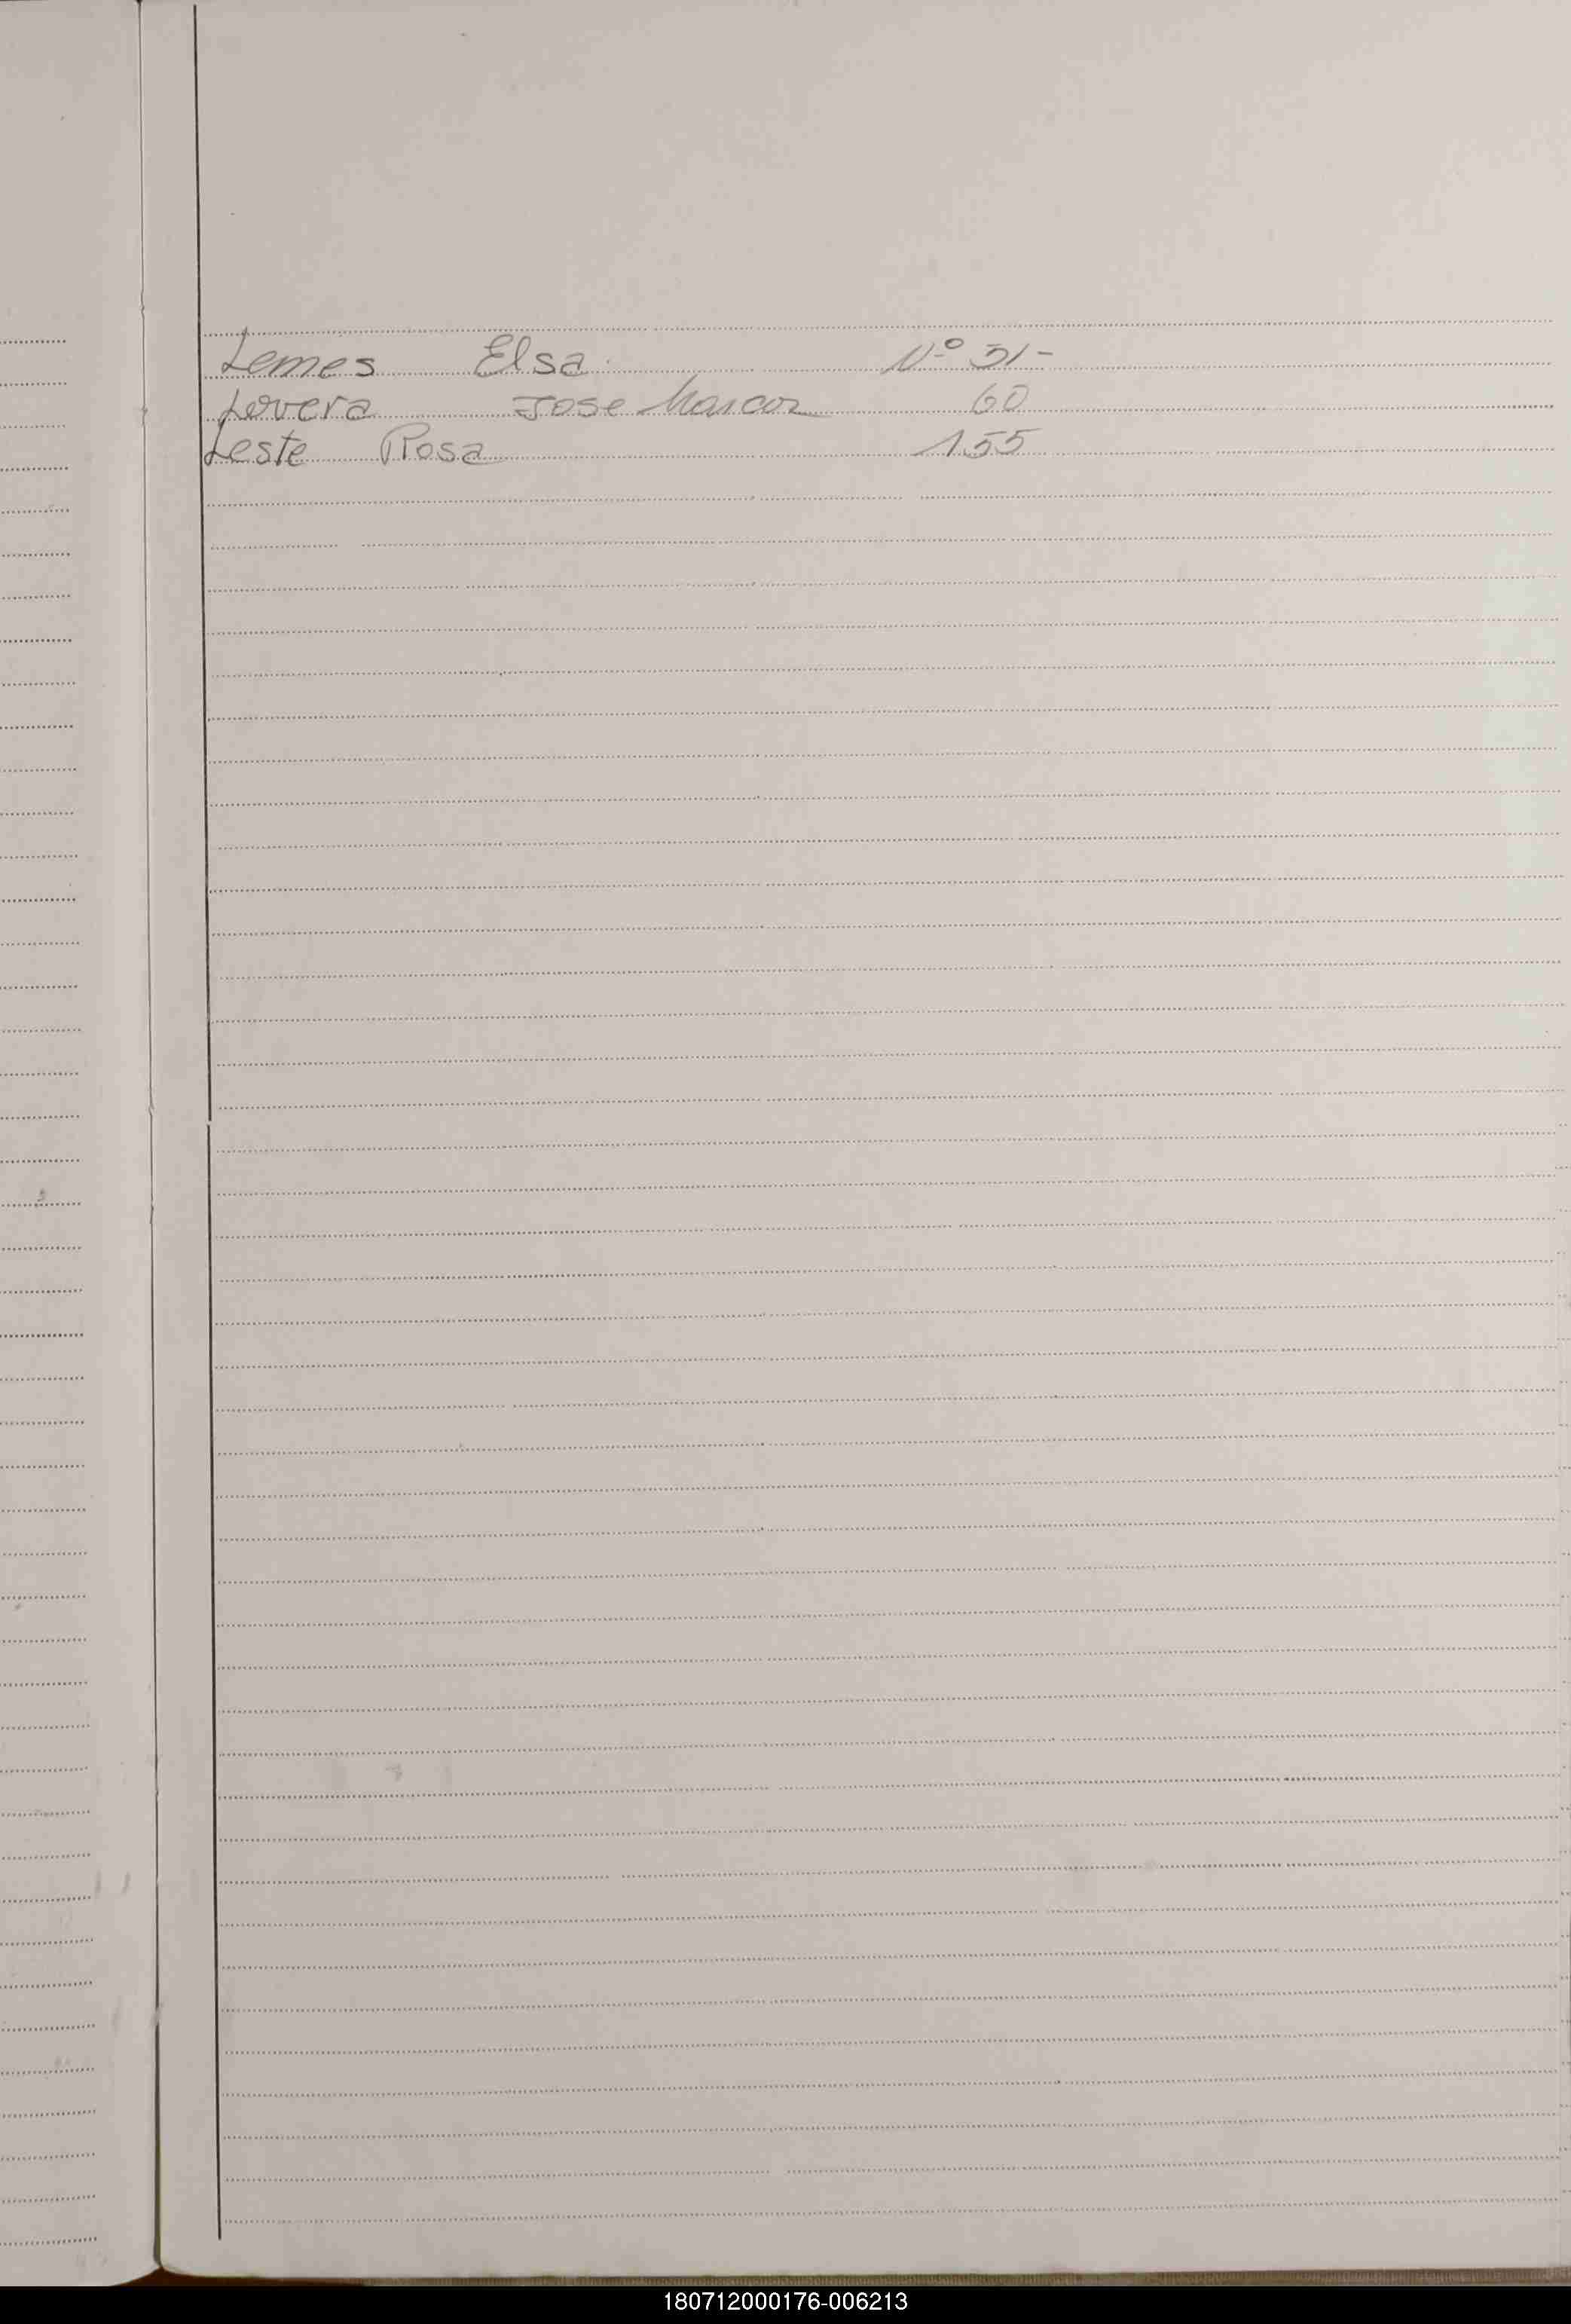 Lemes Elsa. Nº 51-
Lovera Jose Marcos 60
Leste Rosa 155
180712000176-006213